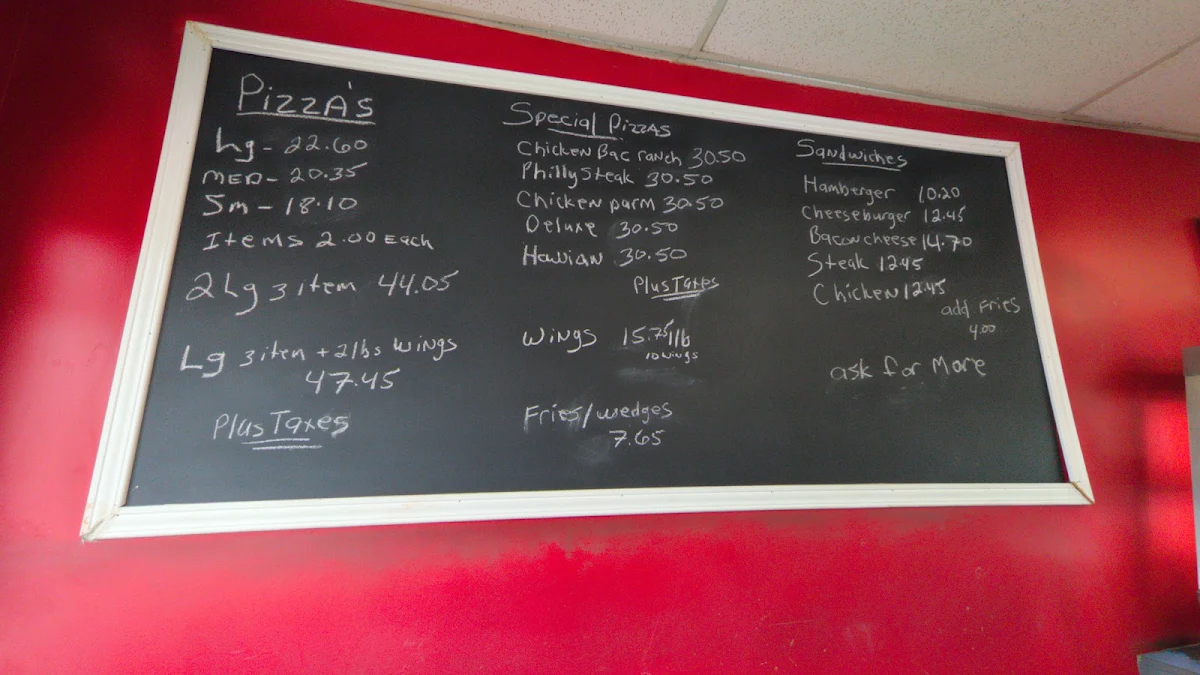 PizzA's
Lg - 22.60
MED - 20.35
Sm - 18.10
Items 2.00 Each
2 Lg 3 item 44.05
Lg 3 iten + 2 lbs wings
47.45
Plus Taxes
Special PizzAs
Chicken Bac ranch 30.50
Philly Steak 30.50
Chicken parm 30.50
Deluxe 30.50
Hawiian 30.50
Plus Taxes
Wings 15.75 1lb
10 wings
Fries/wedges
7.65
Sandwiches
Hamberger 10.20
Cheeseburger 12.45
Bacon cheese 14.70
Steak 12.45
Chicken 12.45
add Fries
4.00
ask for More